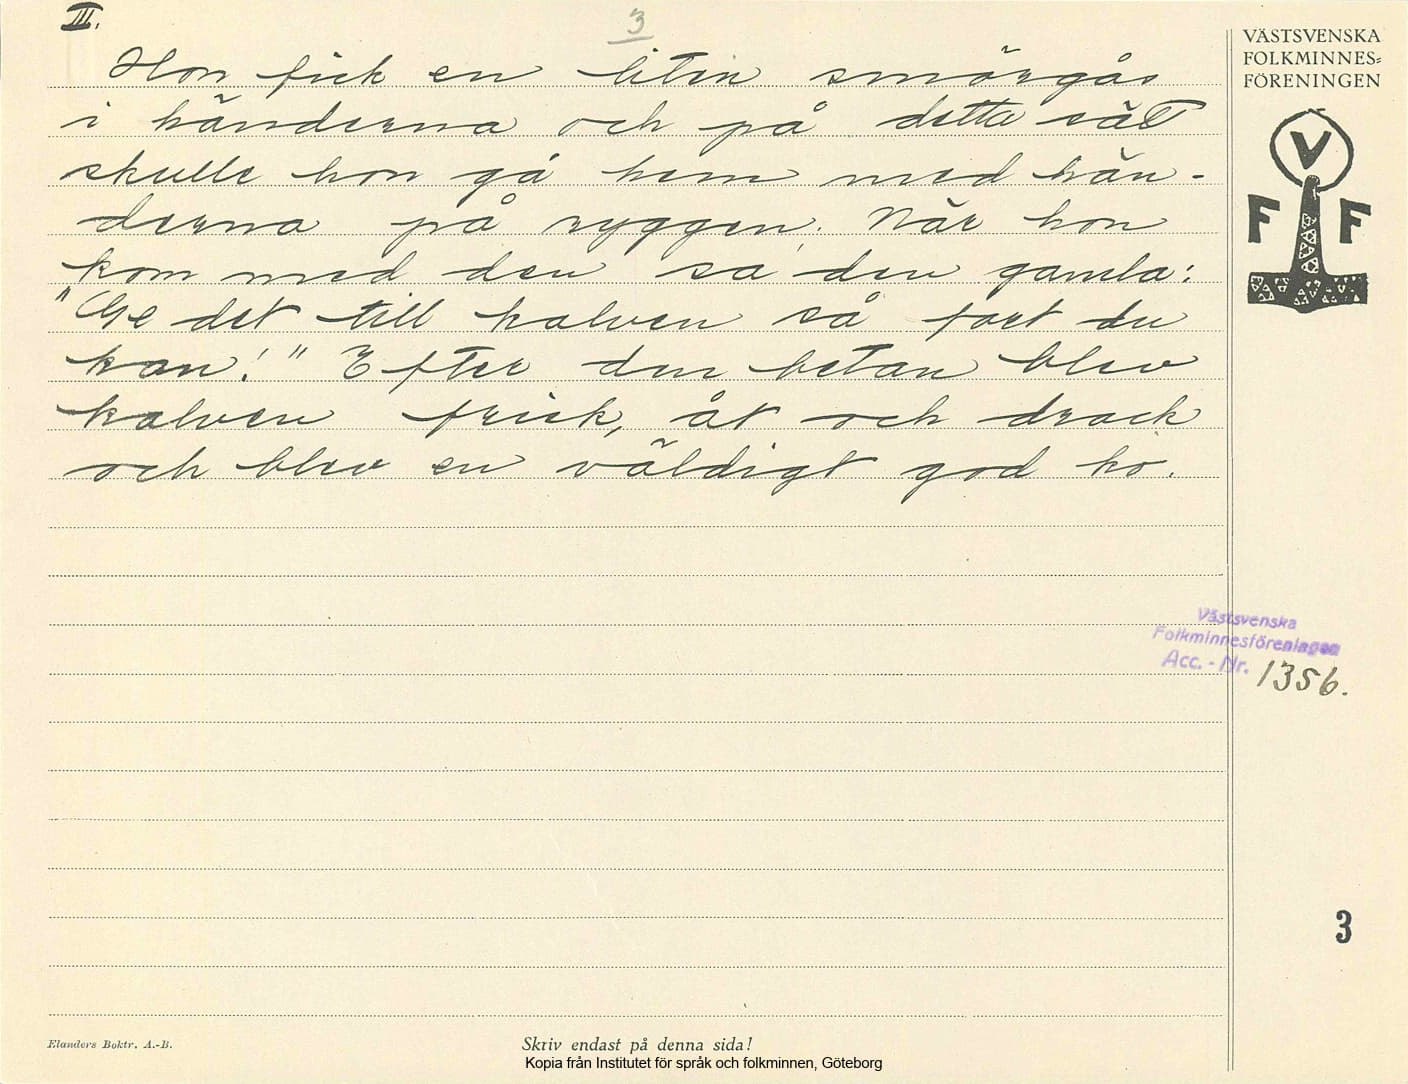 III.
3
Hon fick en liten smörgås
i händerna och på detta sätt
skulle hon gå hem med hän-
derna på ryggen. När hon
kom med den sa den gamla:
"Ge det till kalven så fort du
kan!" Efter den betan blev
kalven frisk, åt och drack
och blev en väldigt god ko.
VÄSTSVENSKA
FOLKMINNES=
FÖRENINGEN
V
F F
Västsvenska
Folkminnesföreningen
Acc. - Nr. 1356.
3
Elanders Boktr. A.-B.
Skriv endast på denna sida!
Kopia från Institutet för språk och folkminnen, Göteborg